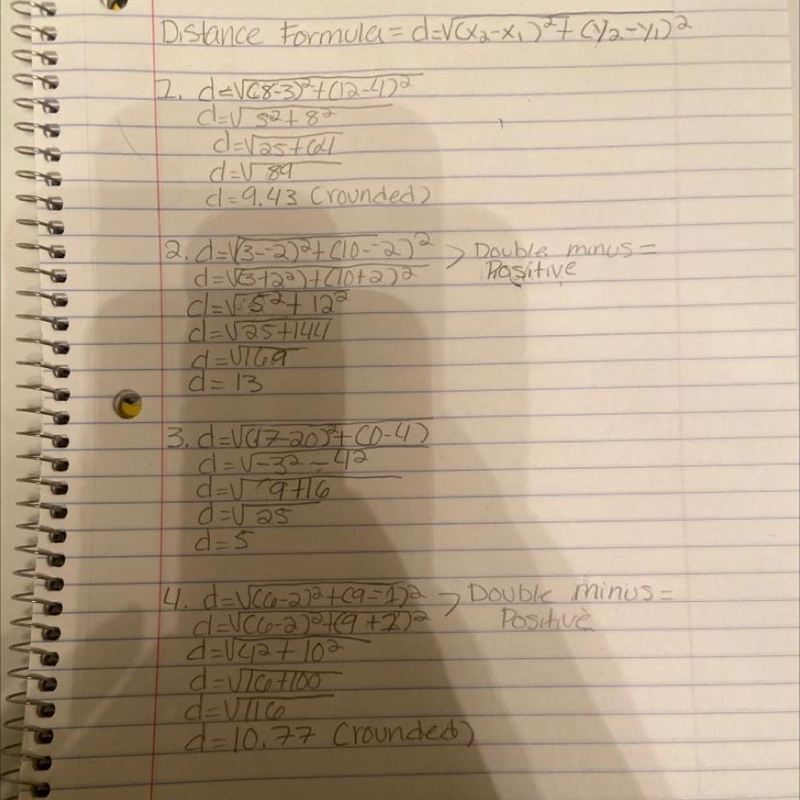 Distance Formula = d=√(x₂-x₁)²+(y₂-y₁)²
1. d=√(8-3)²+(12-4)²
d=√5²+8²
d=√25+64
d=√89
d=9.43 (rounded)
2. d=√(3--2)²+(10--2)² > Double minus =
d=√(3+2²)+(10+2)² Positive
d=√5²+12²
d=√25+144
d=√169
d=13
3. d=√(17-20)²+(0-4)
d=√-3²-4²
d=√9+16
d=√25
d=5
4. d=√(6-2)²+(9--1)² > Double minus =
d=√(6-2)²+(9+1)² Positive
d=√4²+10²
d=√16+100
d=√116
d=10.77 (rounded)